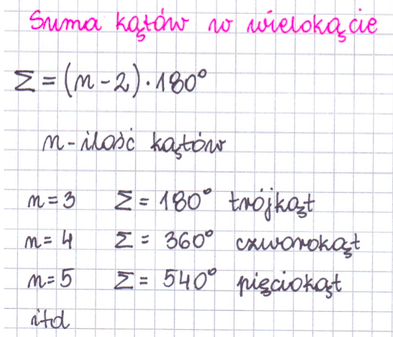 Suma kątów w wielokącie
Σ = (n-2)·180°
n - ilość kątów
n=3 Σ = 180° trójkąt
n=4 Σ = 360° czworokąt
n=5 Σ = 540° pięciokąt
itd